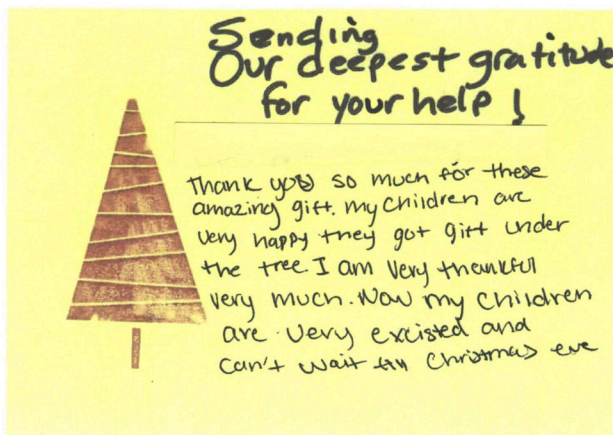 Sending
Our deepest gratitude
for your help!
Thank you so much for these
amazing gift. my children are
very happy they got gift under
the tree. I am very thankful
very much. Now my children
are very excisted and
can't wait till Christmas eve